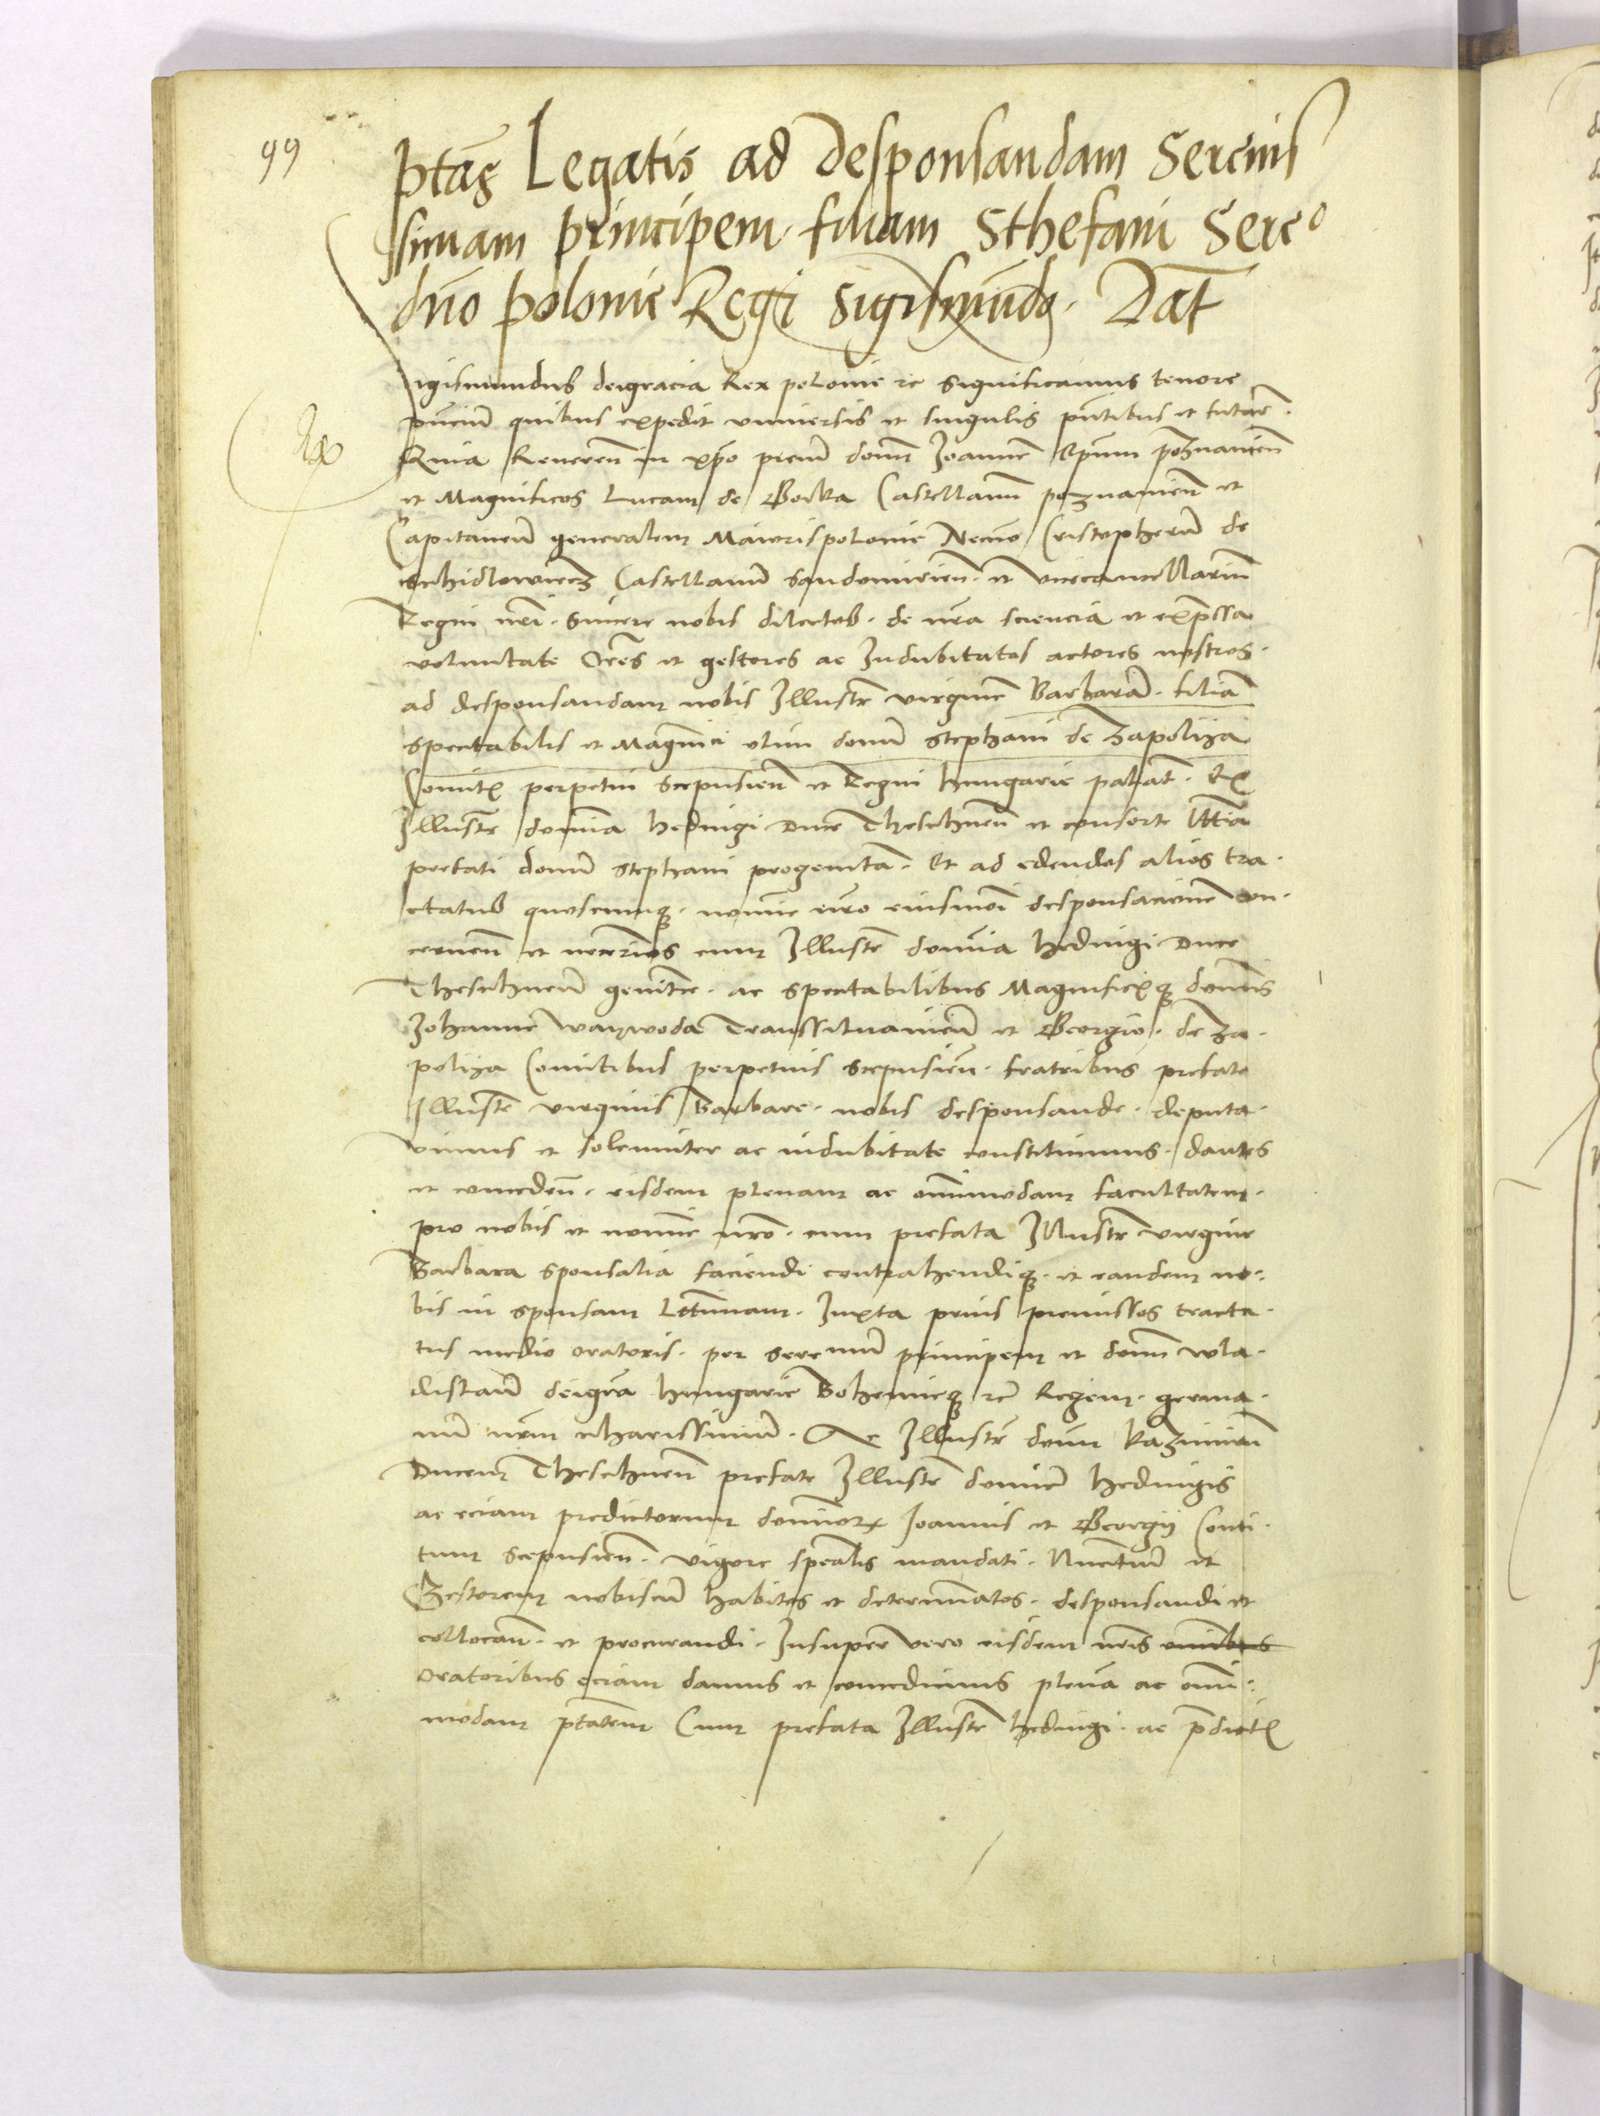 99
ptas Legatis ad Desponsandam Serenis
simam principem filiam Sthefani Sereo
dno polonie Regi Sigismundo. Dat
Sigismundus deigracia Rex polonie rc Significamus tenore
pncium quibus expedit vniuersis et singulis pntibus et futur.
Quia Reueren in xpo prem domn Joannem Epum poznanien
et Magnificos Lucam de Gorka Castellanu poznanien et
Capitaneum generalem Maiorispolonie Necno Cristopherum de
schidlowiecz Castellanu Sandomirien. et vicecancellarium
Regni nri. Sincere nobis dilectos. de nra sciencia et expssa
voluntate Ores et gestores ac Indubitatos actores nostros.
ad desponsandam nobis Illustrem virginem Barbaram. filiam
spectabilis et Magnifici olim domni Stephani de Zapoliya
Comitis perpetui scepusien et Regni hungarie palat. Ex
Illustre domina hedvigi Duce Theschnen et consorte lttima
prefati domni Stephani progenitam. Et ad edendos alios tra-
ctatus quoscumque. nomine nro eiusmodi desponsacionem con-
cernen et necrios cum Illustre domina hedvigi Duce
Theschnen genitrice. ac spectabilibus Magnificisque domnis
Johanne waywoda Transsiluanien et Georgio. de Za-
poliya Comitibus perpetuis scepusien. fratribus prefate
Illustre virginis Barbare. nobis desponsande. deputa-
uimus et solemniter ac indubitate constituimus. dantes
et conceden. eisdem plenam ac omnimodam facultatem.
pro nobis et nomine nro. cum prefata Illustre virgine
Barbara sponsalia faciendi contrahendique. et eandem no-
bis in sponsam Lttimam. Juxta prius premissos tracta-
tus medio oratoris. per serenmum principem et domn wla-
dislaum deigra hungarie Bohemieque rc Regem. germa-
num nrm charissimum. Ac Illustrem domn kazimirum
Ducem Theschnen prefate Illustre domine hedvigis
ac eciam predictorum dominor Joannis et Georgij Comi-
tum scepusien. vigore specialis mandati. Nuntium et
Gestorem nobiscum habitos et determinatos. desponsandi et
collocan. et procurandi. Insuper vero eisdem nris omnibus
oratoribus eciam damus et concedimus plenam ac omni-
modam ptatem Cum prefata Illustre hedvigi. ac pdictis